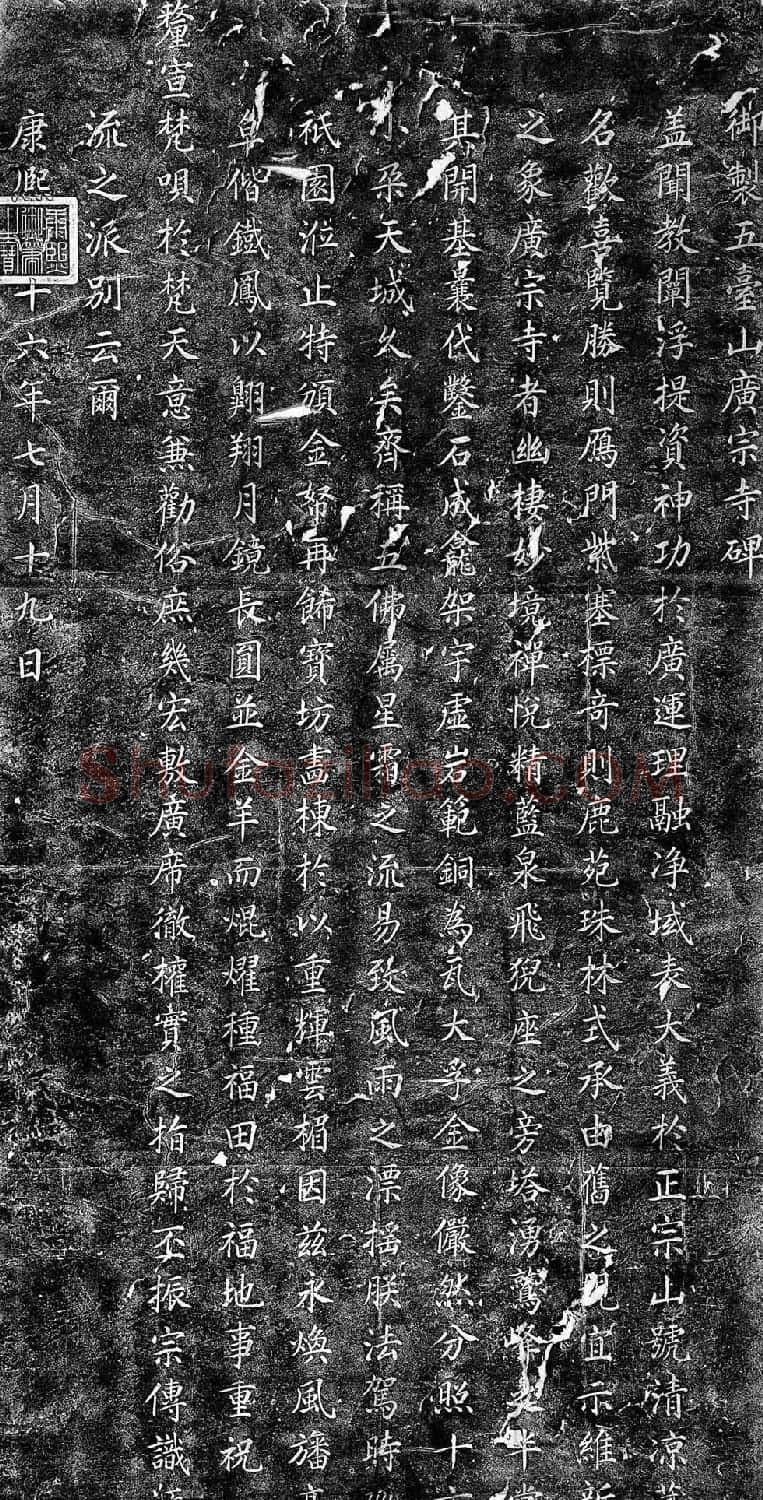 御製五臺山廣宗寺碑
盖聞教闡浮提資神功於廣運理融净域表大義於正宗山號清凉
名歡喜覽勝則鴈門紫塞標奇則鹿苑珠林式承由舊之見宜示維新
之象廣宗寺者幽棲妙境禪悅精藍泉飛猊座之旁塔湧鷲峰半
其開基曩代鑿石成龕架宇虛岩範銅為瓦大孚金像儼然分照十
朵天城久矣齊稱五佛属星霜之流易致風雨之漂摇朕法駕時
祇園涖止特頒金帑再餙寶坊畫棟於以重輝雲楣因兹永煥風旛
阜偕鐵鳳以翺翔月鏡長圓並金羊而焜燿種福田於福地事重祝
釐宣梵唄於梵天意兼勸俗庶幾宏敷廣席徹權實之指歸丕振宗傳識
流之派別云爾
康熙十六年七月十九日
Shufaziliao.com